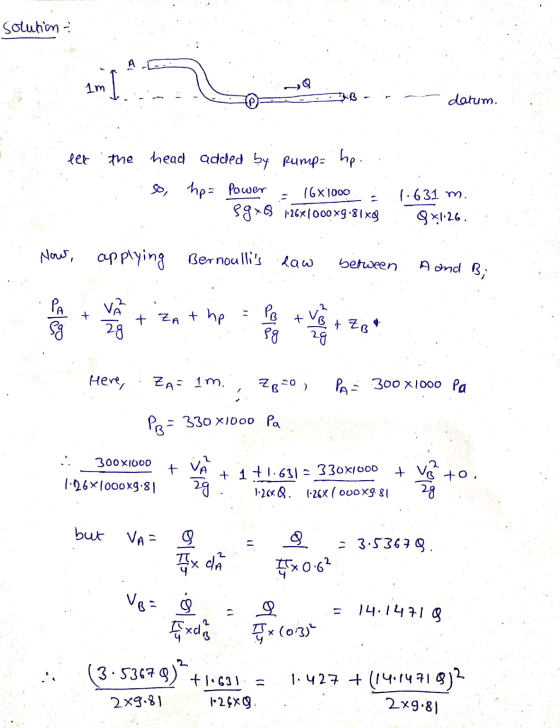 Solution :-
A
1m
→Q
P
B
datum.
let the head added by pump = hp.
so, hp = Power / ρg×Q = 16×1000 / 1.26×1000×9.81×Q = 1.631 m. / Q×1.26.
Now, applying Bernoulli's law between A and B;
P_A/ρg + V_A²/2g + Z_A + hp = P_B/ρg + V_B²/2g + Z_B
Here, Z_A = 1m., Z_B = 0, P_A = 300×1000 Pa
P_B = 330×1000 Pa
∴ 300×1000 / 1.26×1000×9.81 + V_A²/2g + 1 + 1.631 / 1.26×Q. = 330×1000 / 1.26×1000×9.81 + V_B²/2g + 0.
but V_A = Q / π/4 × d_A² = Q / π/4 × 0.6² = 3.5367 Q.
V_B = Q / π/4 × d_B² = Q / π/4 × (0.3)² = 14.1471 Q
∴ (3.5367 Q)² / 2×9.81 + 1.631 / 1.26×Q. = 1.427 + (14.1471 Q)² / 2×9.81